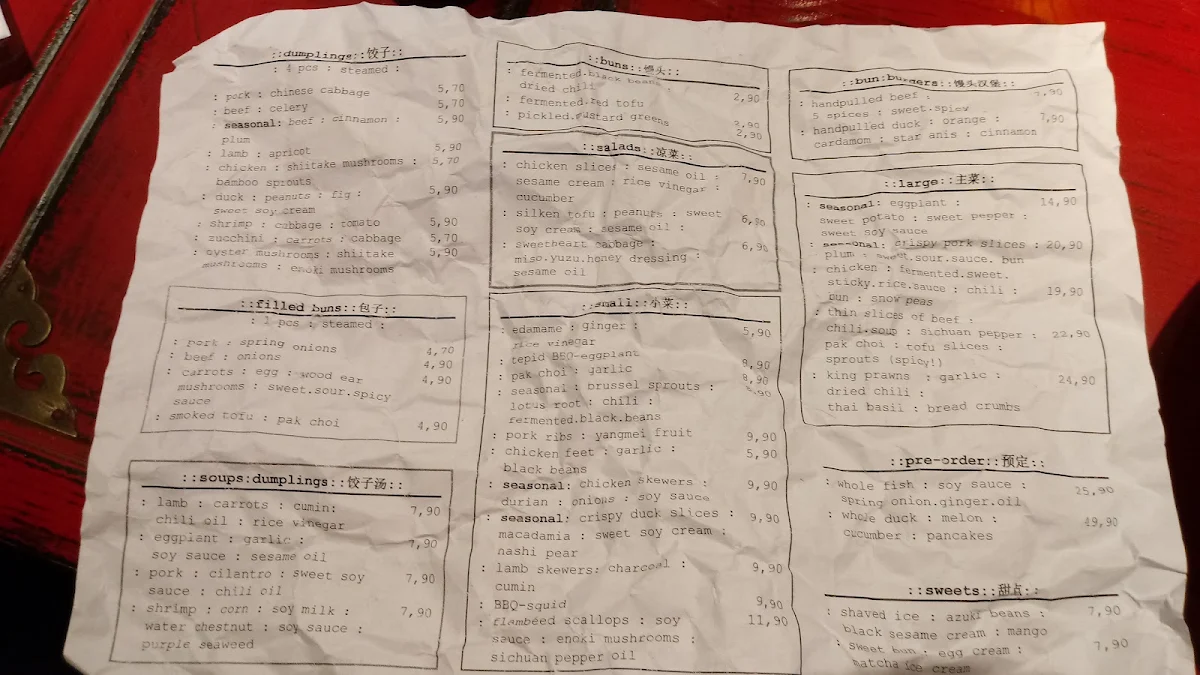 ::dumplings::饺子::
: 4 pcs : steamed :
: pork : chinese cabbage 5,70
: beef : celery 5,70
: seasonal: beef : cinnamon : 5,90
plum
: lamb : apricot 5,90
: chicken : shiitake mushrooms : 5,70
bamboo sprouts
: duck : peanuts : fig : 5,90
sweet soy cream
: shrimp : cabbage : tomato 5,90
: zucchini : carrots : cabbage 5,70
: oyster mushrooms : shiitake 5,90
mushrooms : enoki mushrooms
::filled buns::包子::
: 1 pcs : steamed :
: pork : spring onions 4,70
: beef : onions 4,90
: carrots : egg : wood ear 4,90
mushrooms : sweet.sour.spicy
sauce
: smoked tofu : pak choi 4,90
::soups:dumplings::饺子汤::
: lamb : carrots : cumin: 7,90
chili oil : rice vinegar
: eggplant : garlic : 7,90
soy sauce : sesame oil
: pork : cilantro : sweet soy 7,90
sauce : chili oil
: shrimp : corn : soy milk : 7,90
water chestnut : soy sauce :
purple seaweed
::buns::馒头::
: fermented.black beans :
dried chili 2,90
: fermented.red tofu 2,90
: pickled.mustard greens 2,90
::salads::凉菜::
: chicken slices : sesame oil : 7,90
sesame cream : rice vinegar :
cucumber
: silken tofu : peanuts : sweet 6,90
soy cream : sesame oil :
: sweetheart cabbage : 6,90
miso.yuzu.honey dressing :
sesame oil
::small::小菜::
: edamame : ginger : 5,90
rice vinegar
: tepid BBQ-eggplant 8,90
: pak choi : garlic 8,90
: seasonal : brussel sprouts :
lotus root : chili :
fermented.black.beans
: pork ribs : yangmei fruit 9,90
: chicken feet : garlic : 5,90
black beans
: seasonal: chicken skewers : 9,90
durian : onions : soy sauce
: seasonal: crispy duck slices : 9,90
macadamia : sweet soy cream :
nashi pear
: lamb skewers: charcoal : 9,90
cumin
: BBQ-squid 9,90
: flambéed scallops : soy 11,90
sauce : enoki mushrooms :
sichuan pepper oil
::bun:burgers::馒头汉堡::
: handpulled beef : 7,90
5 spices : sweet.spicy
: handpulled duck : orange : 7,90
cardamom : star anis : cinnamon
::large::主菜::
: seasonal: eggplant : 14,90
sweet potato : sweet pepper :
sweet soy sauce
: seasonal: crispy pork slices : 20,90
plum : sweet.sour.sauce. bun
: chicken : fermented.sweet.
sticky.rice.sauce : chili : 19,90
bun : snow peas
: thin slices of beef :
chili.soup : sichuan pepper : 22,90
pak choi : tofu slices :
sprouts (spicy!)
: king prawns : garlic : 24,90
dried chili :
thai basil : bread crumbs
::pre-order::预定::
: whole fish : soy sauce : 25,90
spring onion.ginger.oil
: whole duck : melon : 49,90
cucumber : pancakes
::sweets::甜点::
: shaved ice : azuki beans : 7,90
black sesame cream : mango
: sweet bun : egg cream : 7,90
matcha ice cream